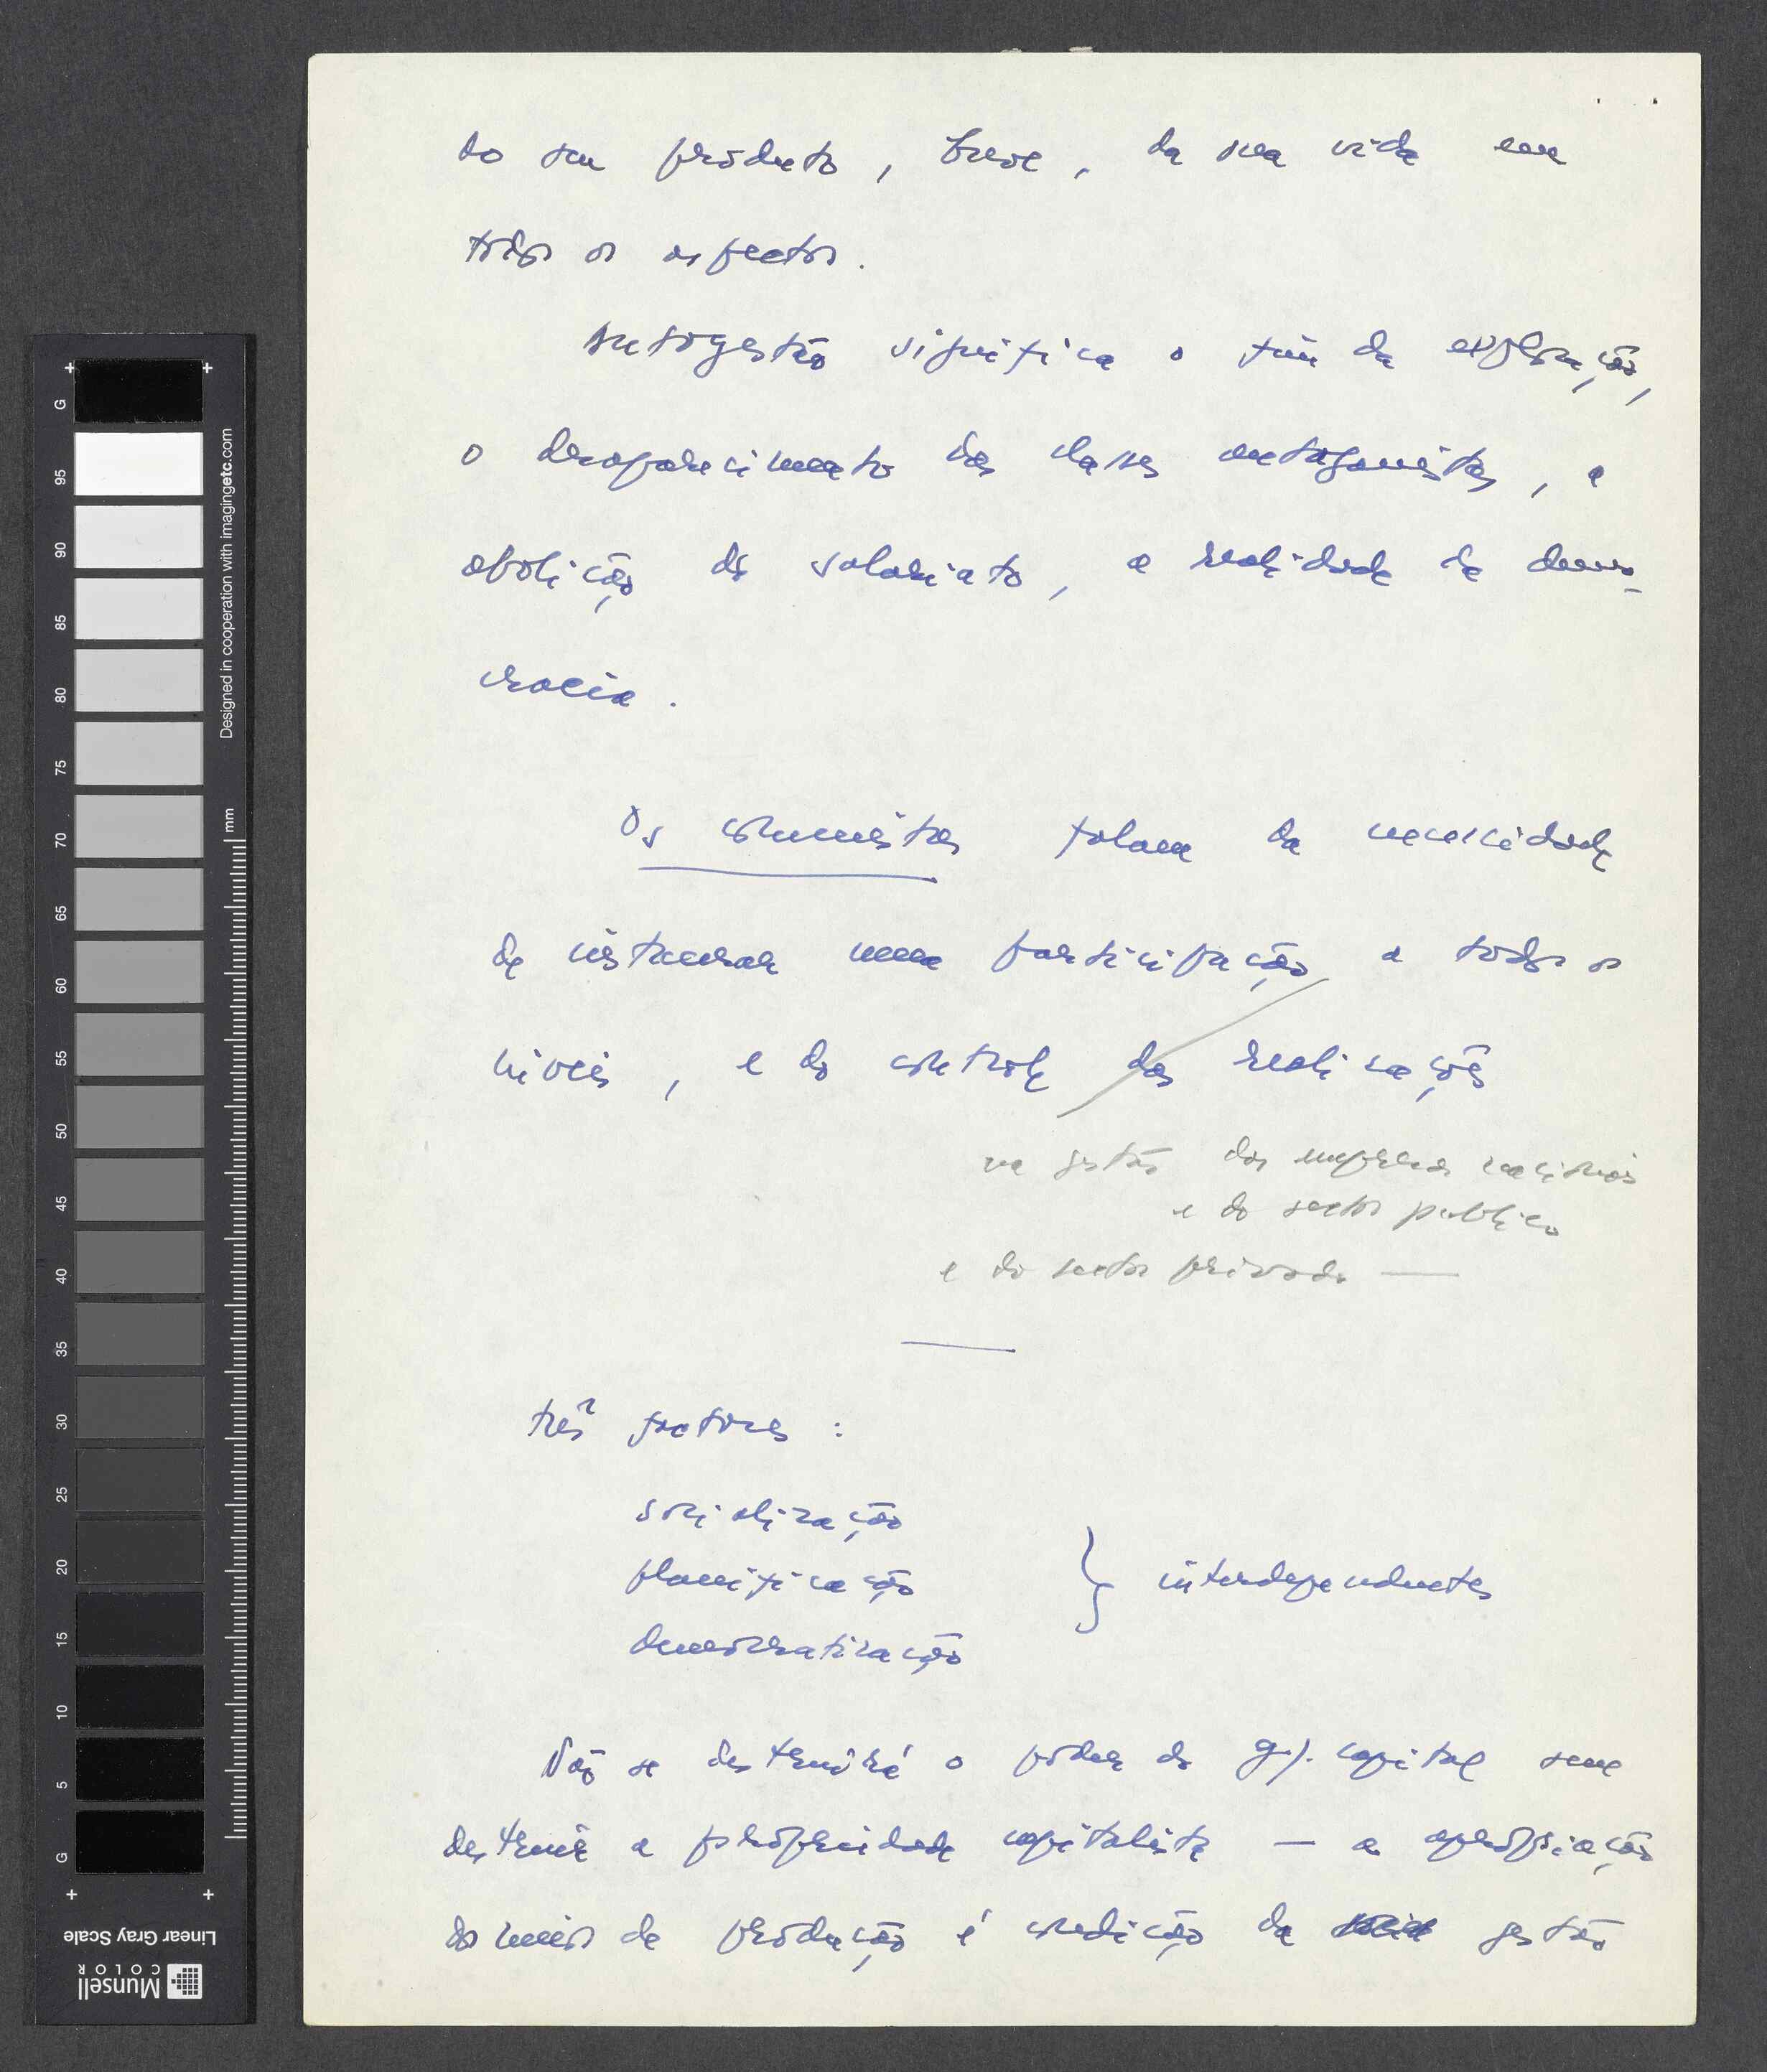 do seu produto, breve, da sua vida em
todos os aspectos.
Autogestão significa o fim da exploração,
o desaparecimento das classes antagonistas, a
abolição do salariato, a realidade da demo-
cracia.
Os comunistas falam da necessidade
de instaurar uma participação a todos os
níveis, e do controle das realizações
na gestão das empresas nacionais
e do sector publico
e do sector privado —
três factores :
socialização
planificação
democratização
} interdependentes
Não se destruirá o poder do gr. capital sem
destruir a propriedade capitalista — a apropriação
dos meios de produção é condição da gestão
G 95 90 85 80 75 70 65 60 55 50 45 40 35 30 25 20 15 10 5 G
Designed in cooperation with imagingetc.com
mm
Linear Gray Scale
Munsell
COLOR